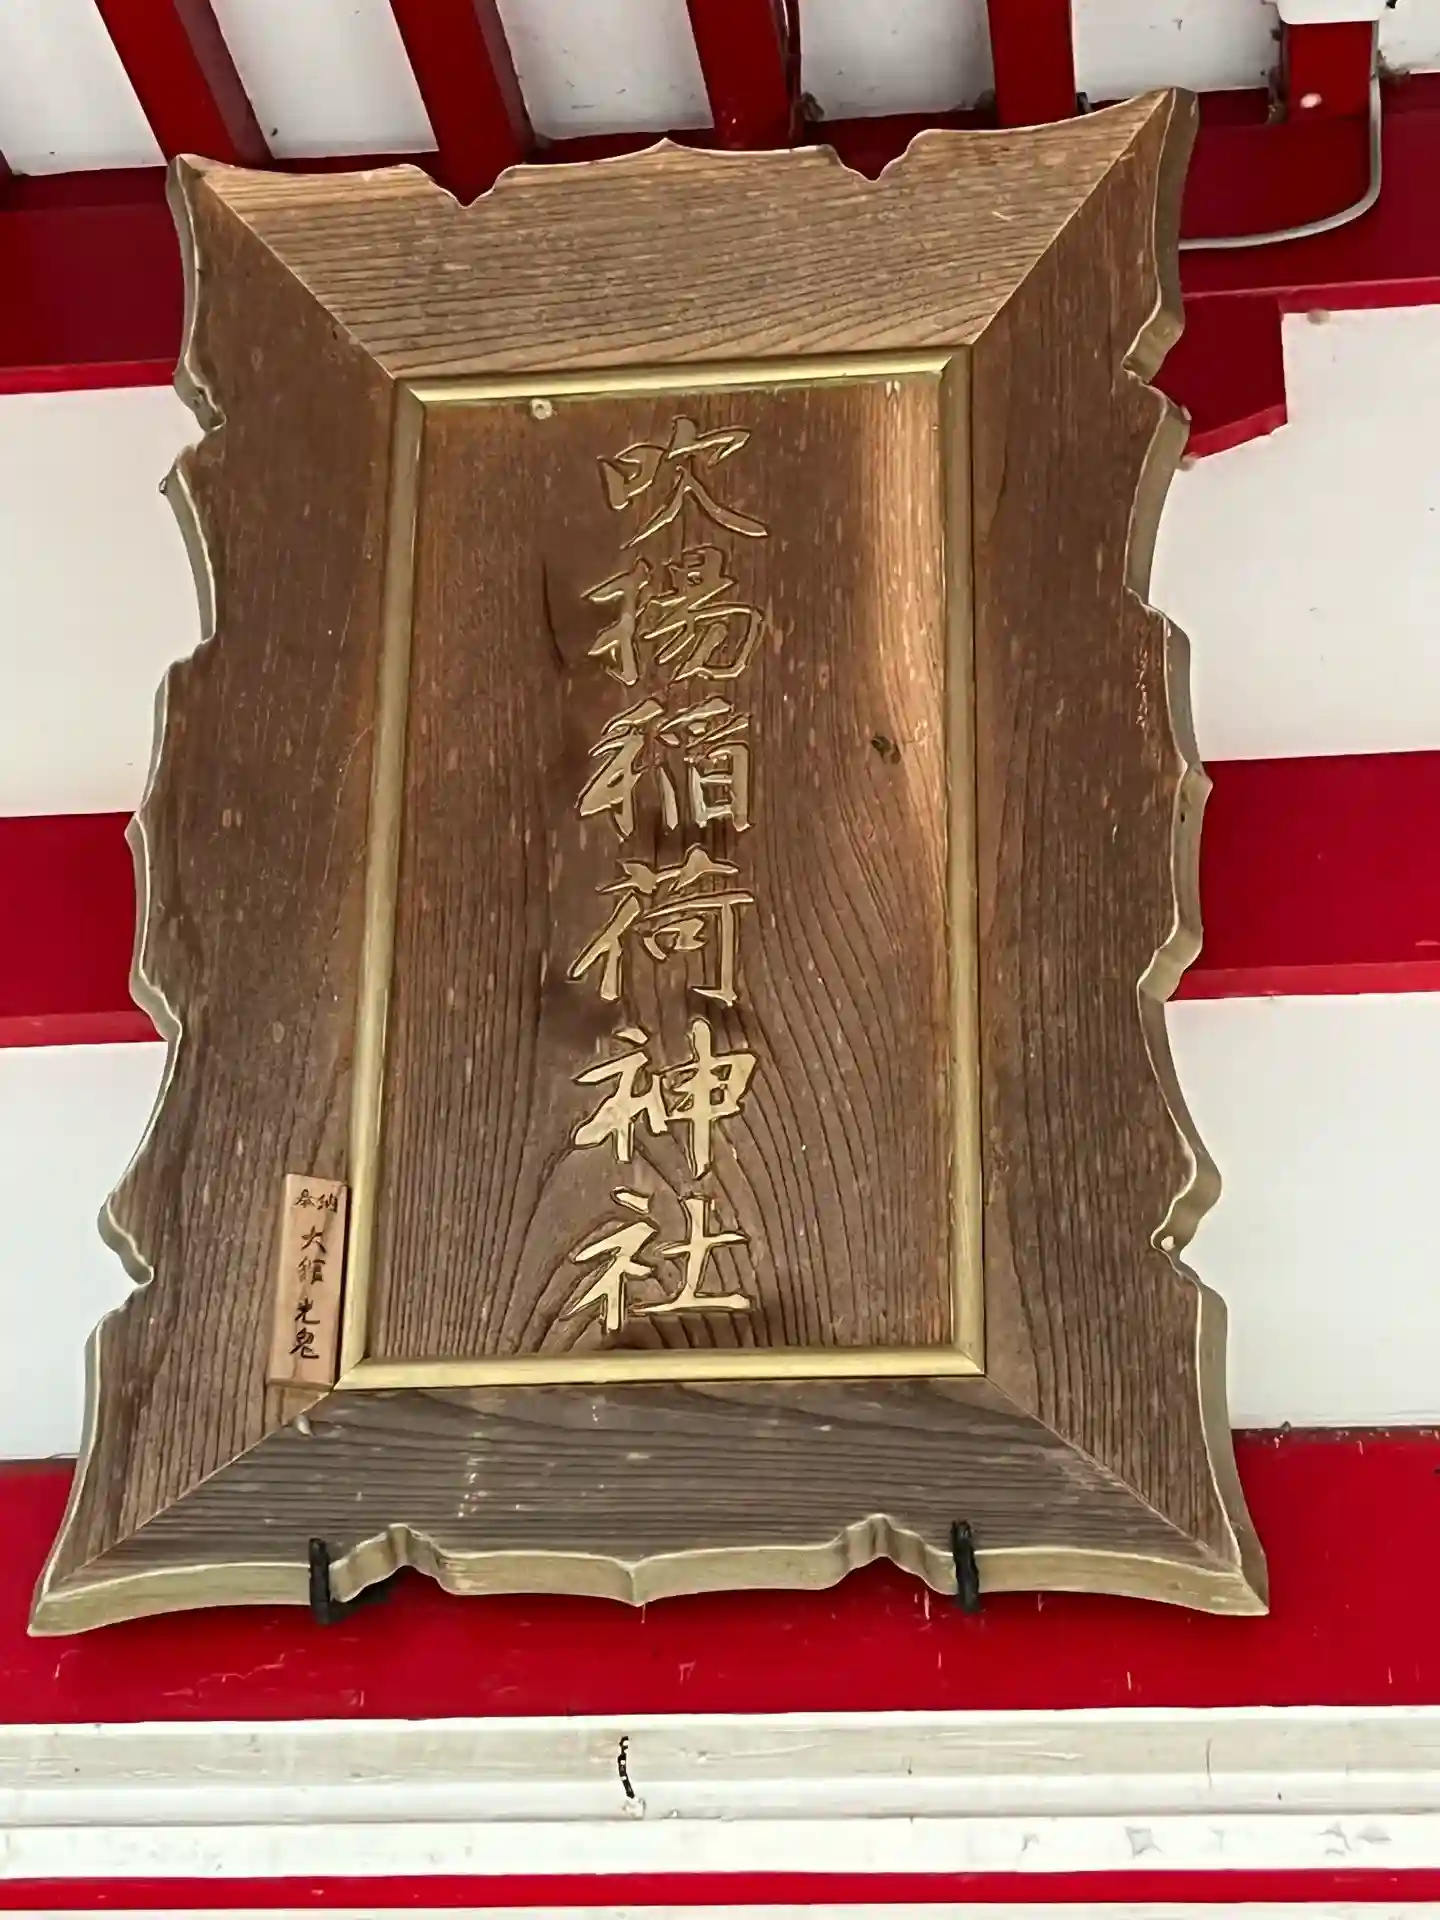 吹揚稲荷神社
奉納
大舘光鬼